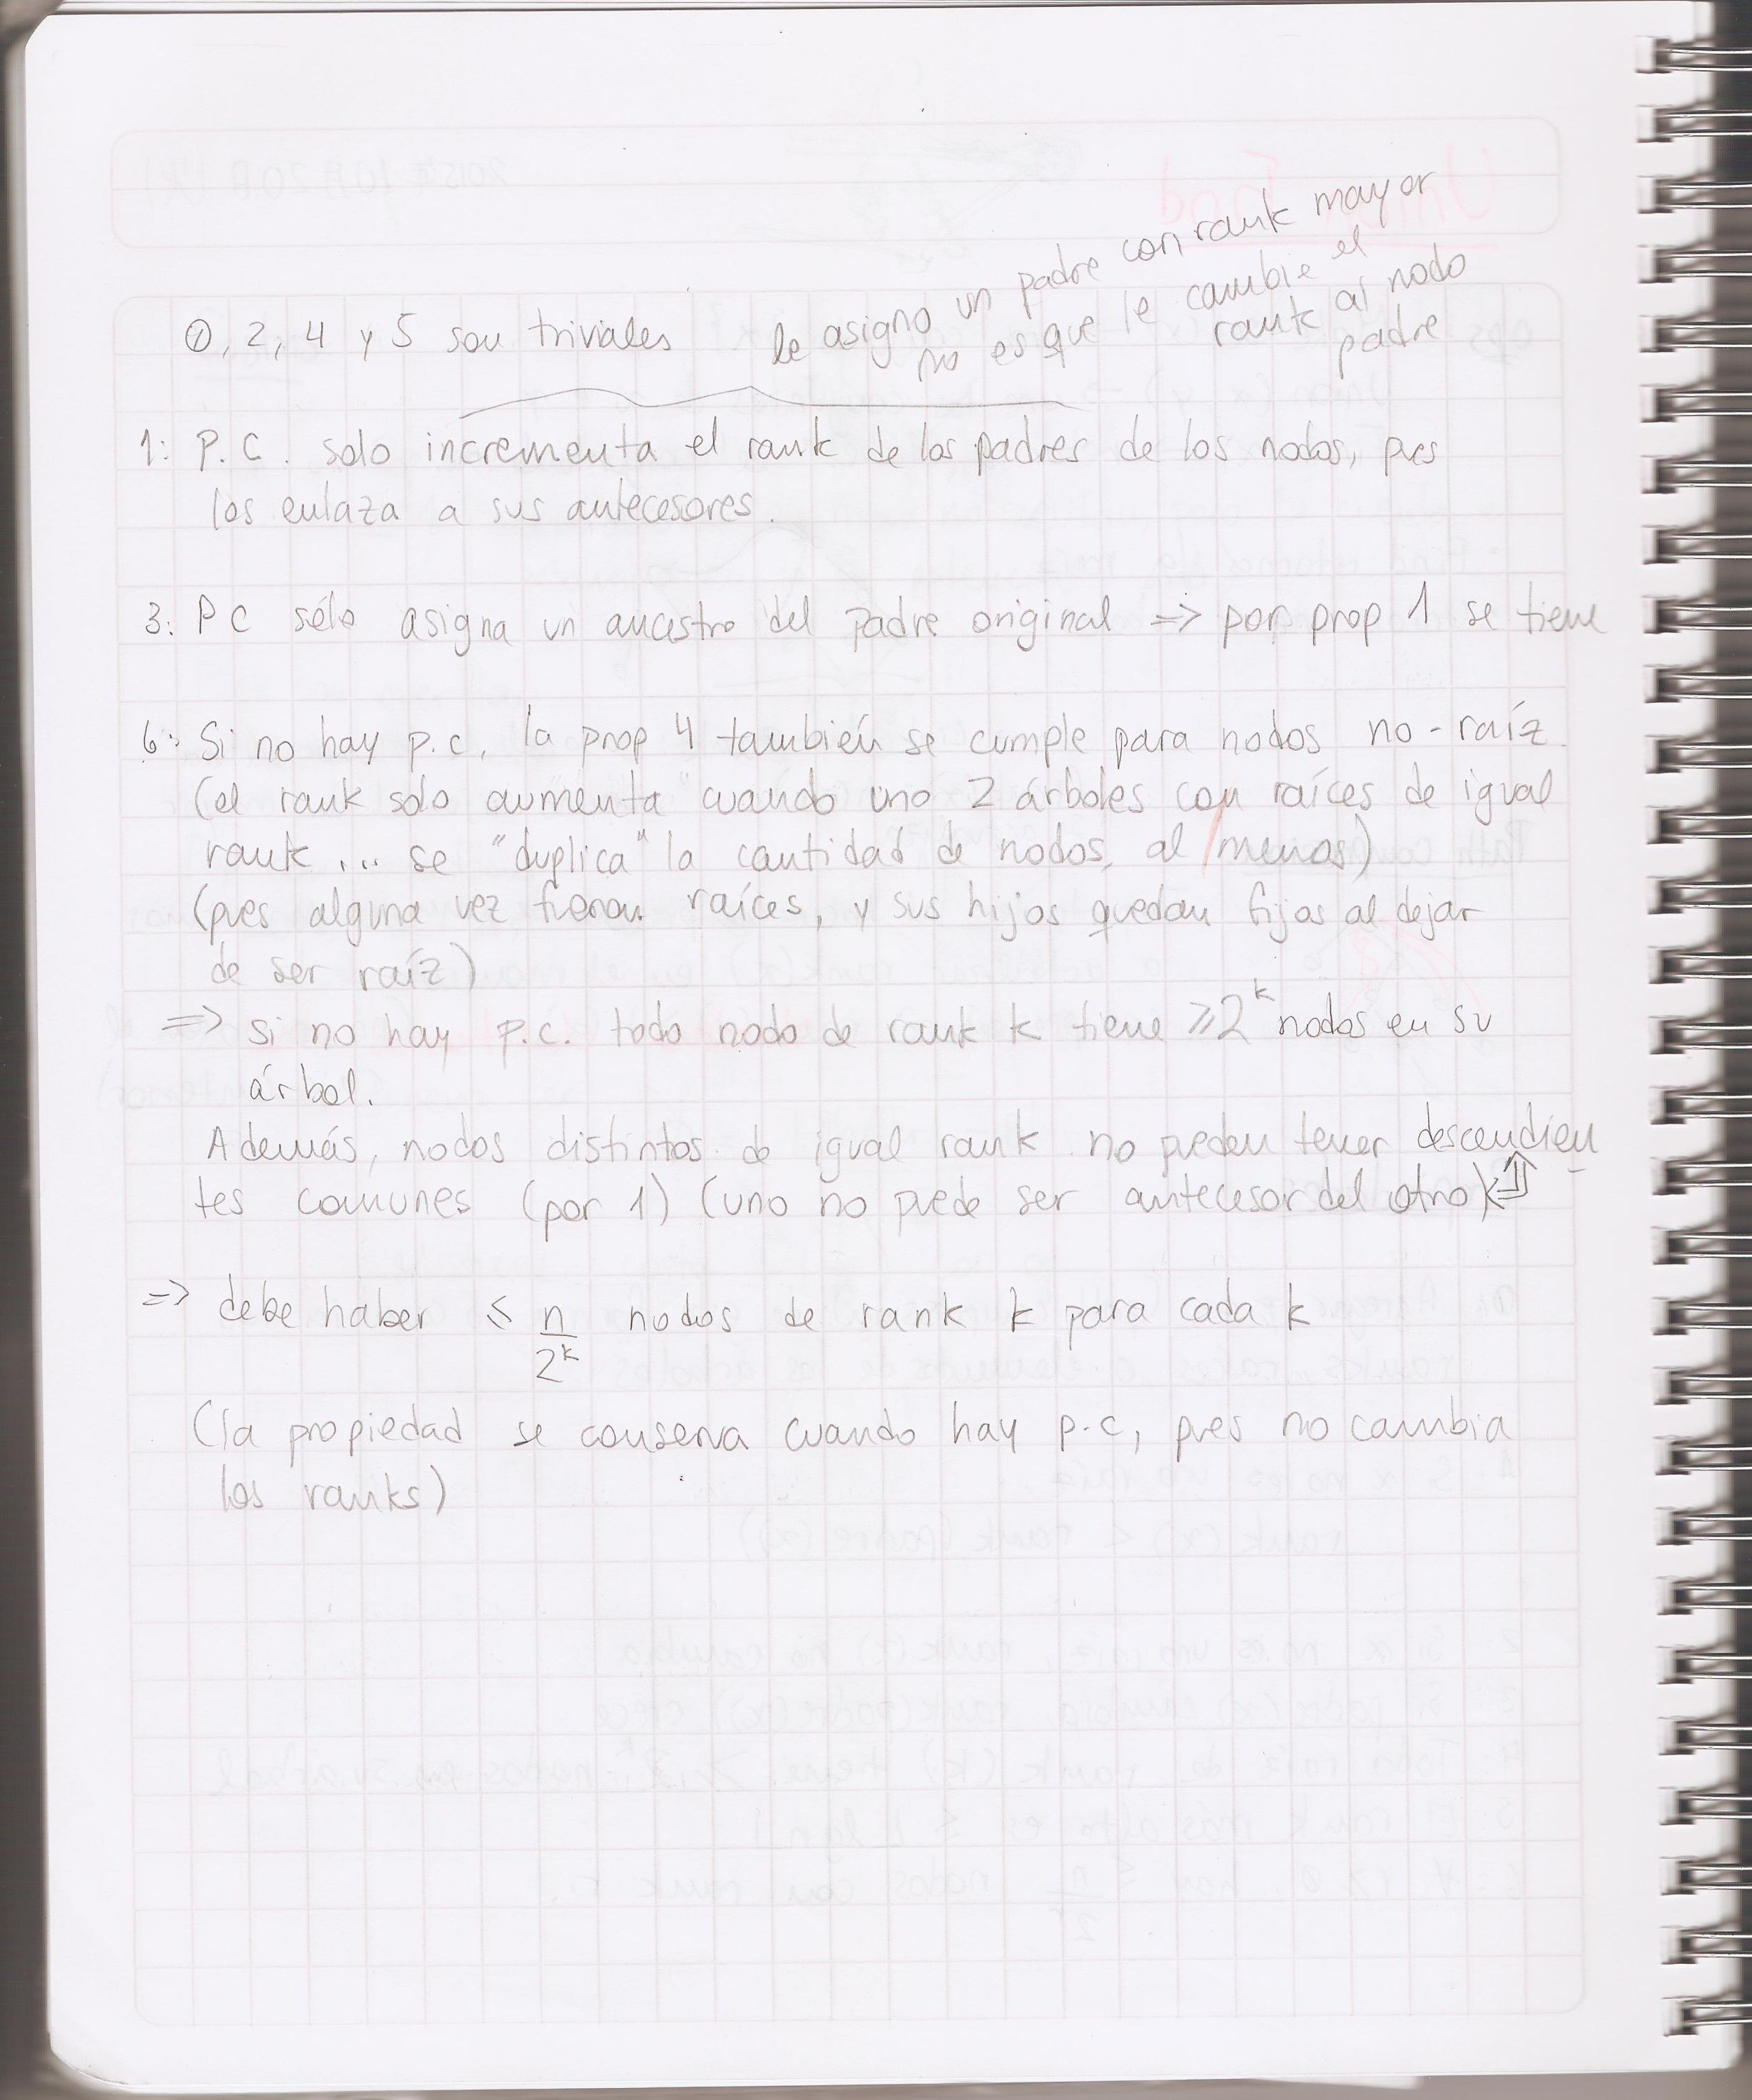 ①, 2, 4 y 5 son triviales
le asigno un padre con rank mayor
no es que le cambie el
rank al nodo
padre
1: P.C. solo incrementa el rank de los padres de los nodos, pues
los enlaza a sus antecesores.
3: PC sólo asigna un ancestro del padre original => por prop 1 se tiene
6: Si no hay p.c, la prop 4 también se cumple para nodos no-raíz.
(el rank solo aumenta cuando uno 2 árboles con raíces de igual
rank ... se "duplica" la cantidad de nodos, al menos)
(pues alguna vez fueron raíces, y sus hijos quedan fijos al dejar
de ser raíz)
=> si no hay p.c. todo nodo de rank k tiene ≥2^k nodos en su
árbol.
Además, nodos distintos de igual rank no pueden tener descendien
tes comunes (por 1) (uno no puede ser antecesor del otro)
=> debe haber ≤ n/2^k nodos de rank k para cada k
(la propiedad se conserva cuando hay p.c, pues no cambia
los ranks)